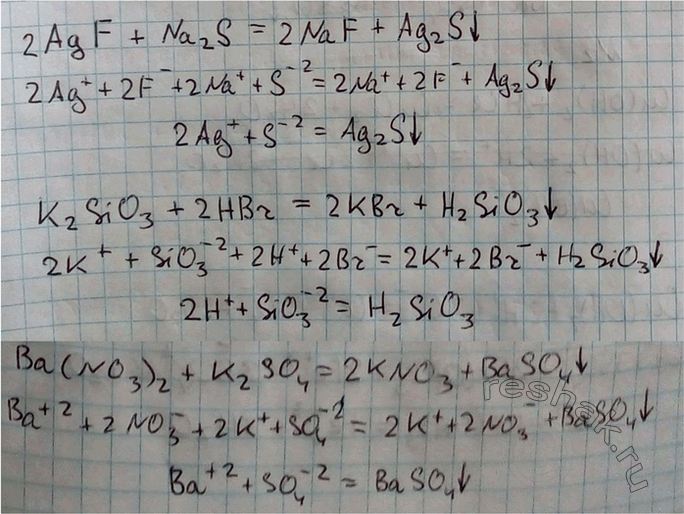 2AgF + Na₂S = 2NaF + Ag₂S↓
2Ag⁺ + 2F⁻ + 2Na⁺ + S⁻² = 2Na⁺ + 2F⁻ + Ag₂S↓
2Ag⁺ + S⁻² = Ag₂S↓
K₂SiO₃ + 2HBr = 2KBr + H₂SiO₃↓
2K⁺ + SiO₃⁻² + 2H⁺ + 2Br⁻ = 2K⁺ + 2Br⁻ + H₂SiO₃↓
2H⁺ + SiO₃⁻² = H₂SiO₃
Ba(NO₃)₂ + K₂SO₄ = 2KNO₃ + BaSO₄↓
Ba⁺² + 2NO₃⁻ + 2K⁺ + SO₄⁻² = 2K⁺ + 2NO₃⁻ + BaSO₄↓
Ba⁺² + SO₄⁻² = BaSO₄↓
reshak.ru